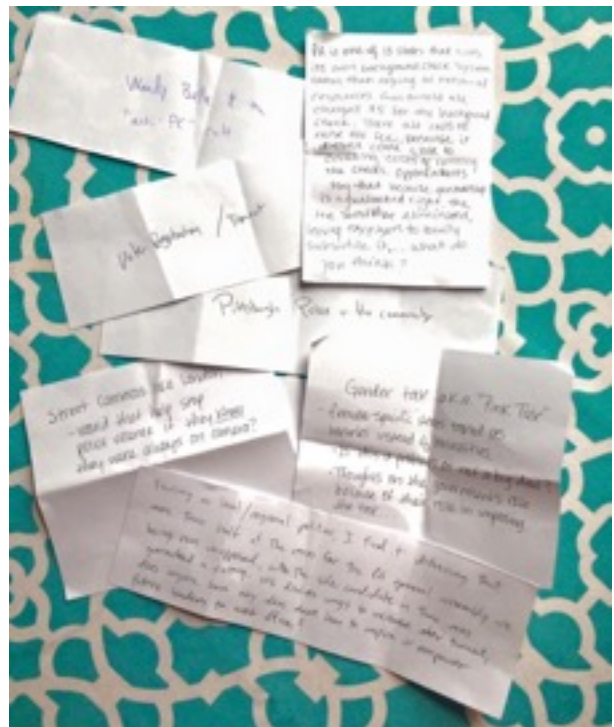 "anti-PC-
PA is one of 13 states that runs
its own background check system
rather than relying on national
resources
charges $5 for any background
check. There are calls to
raise the fee, because it
doesn't come close to
covering costs of running
the check. Opponents
say that because gun ownership
is a fundamental right the
fee should be eliminated,
leaving taxpayers to totally
subsidize it... what do
you think?
Voter Registration / Turnout
Pittsburgh Police & the community
Street Cameras like London
- would that help stop
police violence if they knew
they were always on camera?
Gender tax a.k.a. "Pink Tax"
- female-specific items taxed as
luxuries instead of necessities.
- Is this a problem or not a big deal?
- Thoughts on the government's role
because of their role in imposing
the tax
Focusing on local/regional politics I find it distressing that
more than half of the races for the PA general assembly are
being run unopposed, with the sole candidate in those races
guaranteed a victory. We discuss ways to increase voter turnout,
does anyone have any ideas about how to inspire or empower
future leaders to seek office?